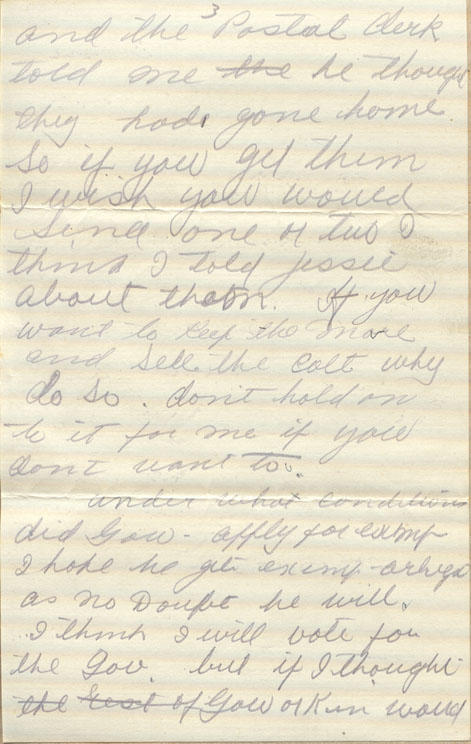 3
and the Postal Clerk
told me the he though
they had gone home.
So if you get them
I wish you would
send one or two I
think I told Jessie
about them. If you
want to keep the mare
and sell the colt why
do so. don't hold on
to it for me if you
dont want to.
under what conditions
did Gow - apply for exemp
I hope he gets exemp-
as no Doubt he will.
I think I will vote for
the Gov. but if I thought
the Rest of Gow or Kin would